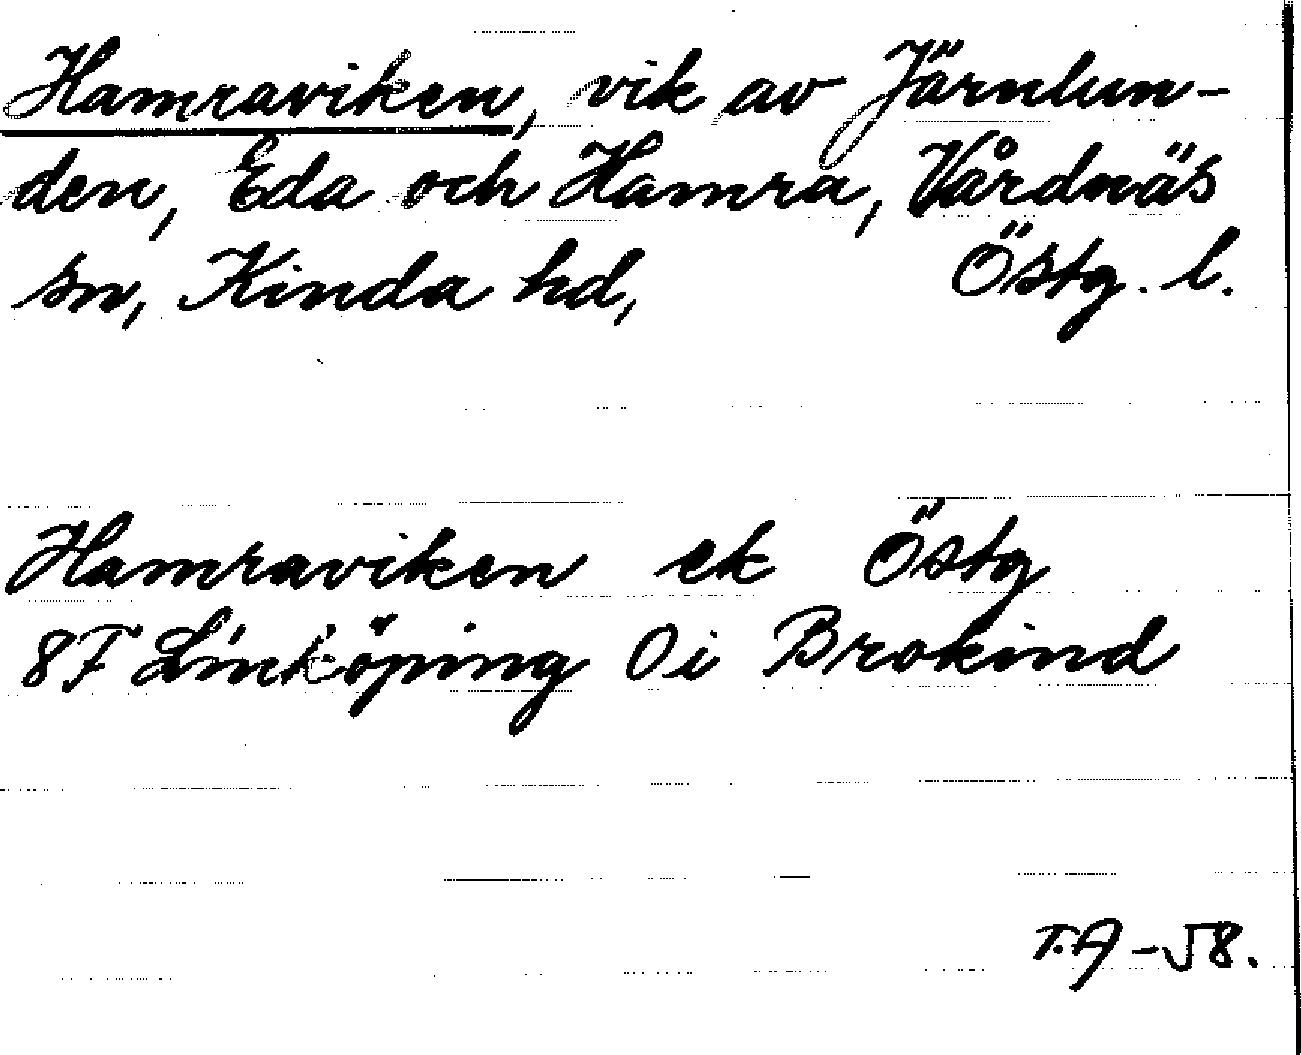 Hamraviken, vik av Järnlun-
den, Eda och Hamra, Vårdnäs
sn, Kinda hd, Östg. l.
Hamraviken ek Östg
8F Linköping Öi Brokind
T.A -58.